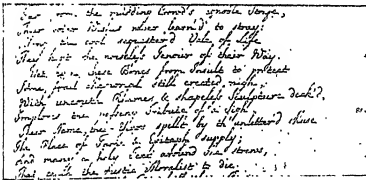 Far from the madding Crowd's ignoble Strife,
Their sober wishes never learn'd to stray:
Along the cool sequester'd Vale of Life
They kept the noiseless Tenour of their Way.
Yet even these Bones from Insult to protect
Some frail memorial still erected nigh,
With uncouth Rhimes & shapeless Sculpture deck'd,
Implores the passing Tribute of a Sigh.
Their Name, their Years, spelt by th' unletter'd Muse
The Place of Fame & Epitaph supply;
And many a holy Text around she strews,
That teach the rustic Moralist to die.